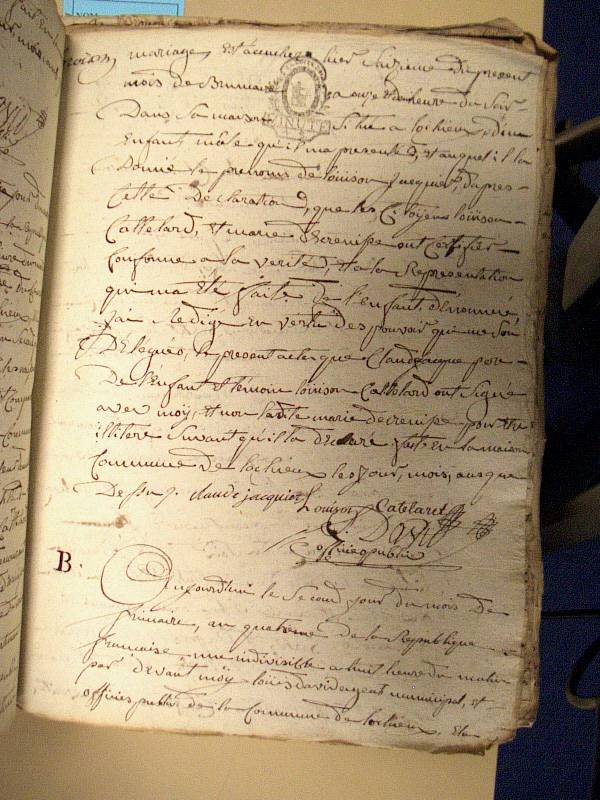 mariage, est accouchee hier seizieme du present
mois de Brumaire a onze heure du soir
Dans sa maison Situe a lochieux, d'un
Enfant mâle qu'il m'a presenté, et auquel il a
Donné le prenoms de louison Jacquier, d'apres
Cette Declaration, que les Citoyens louison
Cattelard, et marie Decrenipe ont Certifier
Conforme a la verité, et a la Representation
qui m'a Eté faite de l'enfant dénommé
j'ai Redigé En vertu des pouvoir qui me Son
Délégués, le present acte que Claude jacque pere
De l'Enfant et témoin louison Cattelard ont Signé
avec moy, et non ladite marie decrenipe pour être
illitere Suivant qu'il la declaré fait en la maison
Commune de lochieux les jour, mois, an que
Dessus. claude jacquier Louison Catelaret
David
officier public
B.
Aujourdhui le Second jour du mois de
frimaire, an quatrieme de la Republique
francaise une indivisible a huit heure du matin
par devant moy loüis david agent municipal, et
officier public de la Commune de lochieux, Est